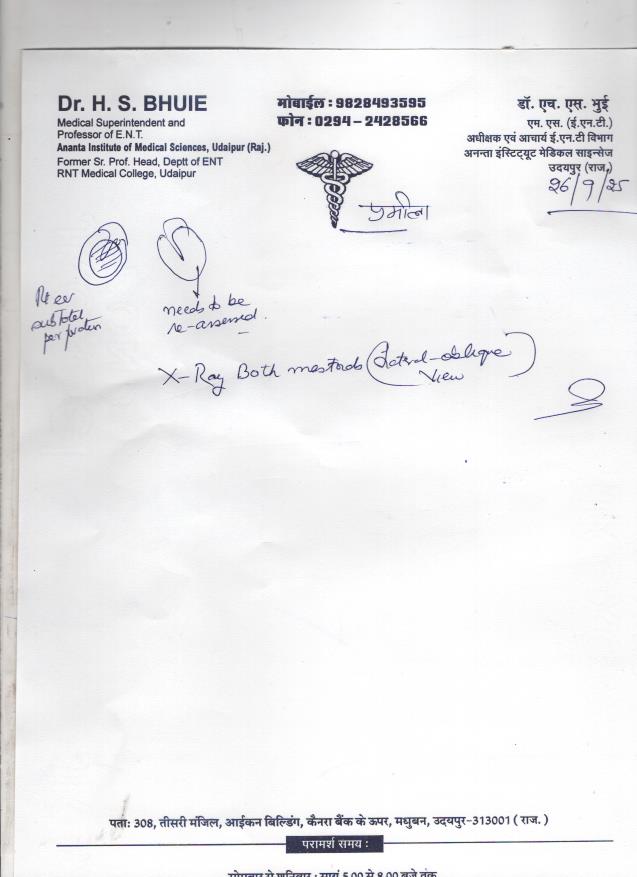 Dr. H. S. BHUIE
Medical Superintendent and
Professor of E.N.T.
Ananta Institute of Medical Sciences, Udaipur (Raj.)
Former Sr. Prof. Head, Deptt of ENT
RNT Medical College, Udaipur
मोबाईल : 9828493595
फोन : 0294 - 2428566
डॉ. एच. एस. भुई
एम. एस. (ई.एन.टी.)
अधीक्षक एवं आचार्य ई.एन.टी विभाग
अनन्ता इंस्टिट्यूट मेडिकल साइन्सेज
उदयपुर (राज.)
26/9/25
प्रमीला
subtotal
needs to be
re-assessed.
X-Ray Both mastoids (Lateral-oblique
View)
पताः 308, तीसरी मंजिल, आईकन बिल्डिंग, कैनरा बैंक के ऊपर, मधुबन, उदयपुर-313001 ( राज. )
परामर्श समय :
सोमवार से शनिवार : सायं 5.00 से 8.00 बजे तक